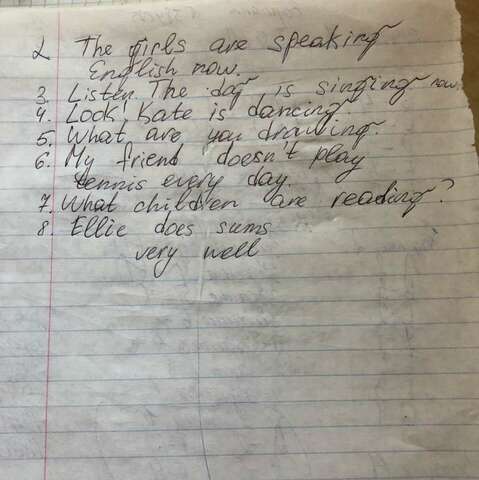 2 The girls are speaking
English now.
3. Listen. The dog is singing now.
4. Look, Kate is dancing
5. What are you drawing.
6. My friend doesn't play
tennis every day.
7. What children are reading?
8. Ellie does sums
very well